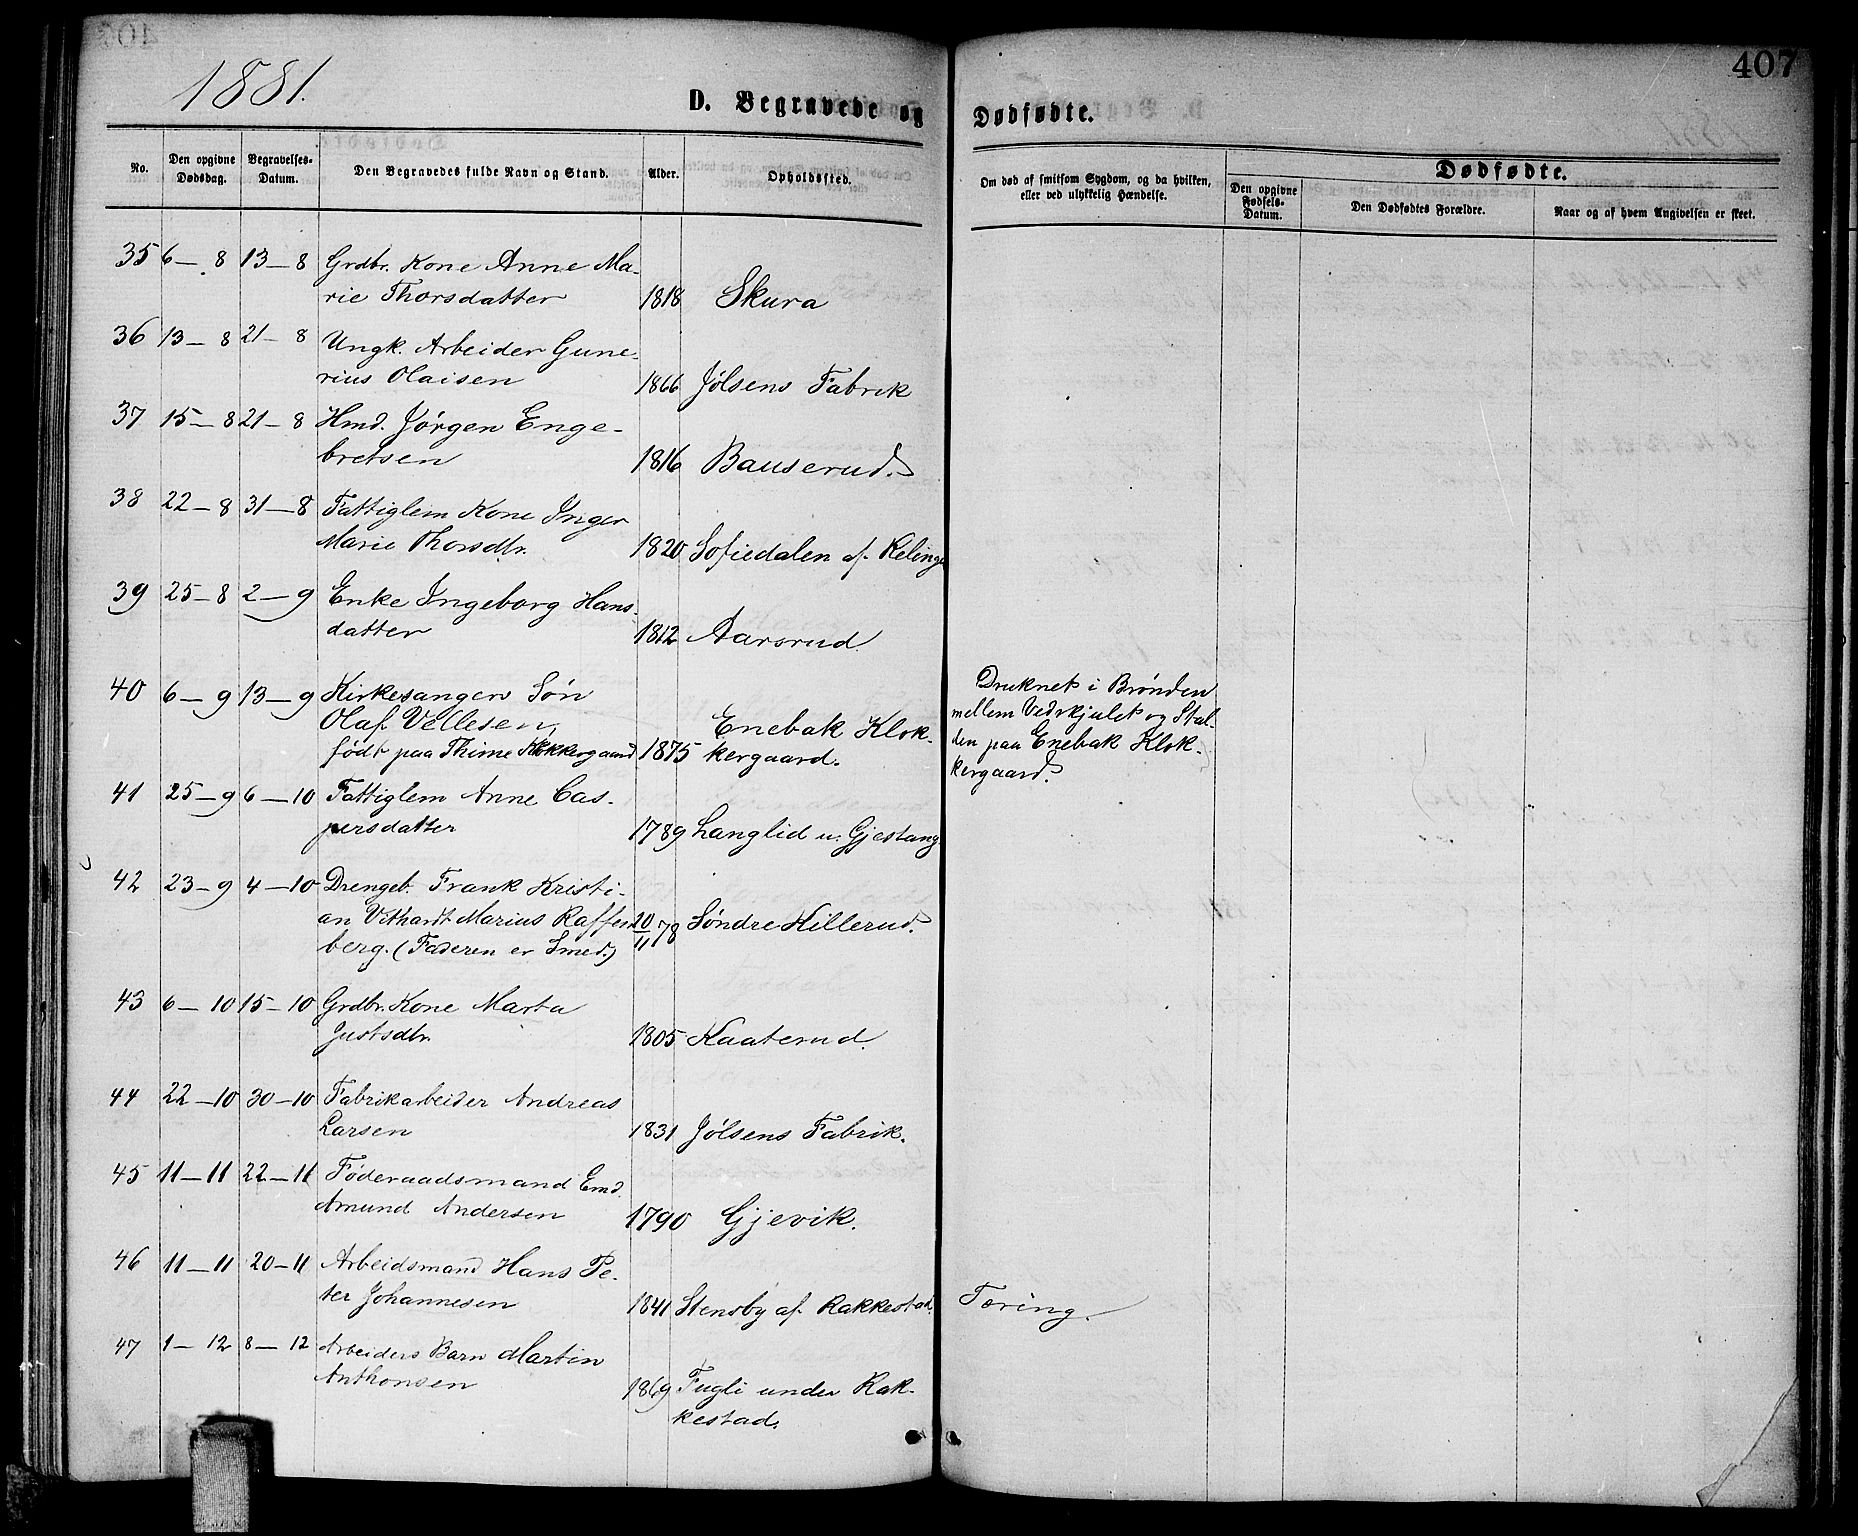 1881.
407
D. Begravede og Dødfødte.
No.
Den opgivne Dødsdag.
Begravelses-Datum.
Den Begravedes fulde Navn og Stand.
Alder.
Opholdssted.
Om død af smitsom Sygdom, og da hvilken, eller ved ulykkelig Hændelse.
Dødfødte.
Den opgivne Fødsels-Datum.
Den Dødfødtes Forældre.
Naar og af hvem Angivelsen er skeet.
35 6–8 13–8 Grdbr. Kone Anne Ma-
rie Thorsdatter 1818 Skura
36 13–8 21–8 Ungk. Arbeider Gune-
rius Olaisen 1866 Jølsens Fabrik
37 15–8 21–8 Hmd. Jørgen Enge-
bretsen 1816 Bauserud.
38 22–8 31–8 Fattiglem Kone Inger
Marie Thorsdtr. 1820 Sofiedalen af
39 25–8 2–9 Enke Ingeborg Hans-
datter 1812 Aarsrud.
40 6–9 13–9 Kirkesangers Søn
Olaf Vellesen,
født paa Thime Klokkergaard 1875 Enebak Klok-
kergaard.
Druknet i Brønden
mellem Vedskjulet og Stal-
den paa Enebak Klok-
kergaard.
41 25–9 6–10 Fattiglem Anne Cas-
persdatter 1789 Langlid u. Gjestang
42 23–9 4–10 Drengeb. Frank Kristi-
an Marius Raffen
berg. (Faderen er Smed.) 20/11 78 Søndre Hillerud.
43 6–10 15–10 Grdbr. Kone Marta
Justsdtr. 1805 Kaaterud.
44 22–10 30–10 Fabrikarbeider Andreas
Larsen 1831 Jølsens Fabrik.
45 11–11 22–11 Føderaadsmand Emd.
Amund Andersen 1790 Gjevik.
46 11–11 20–11 Arbeidsmand Hans Pe-
ter Johannesen 1841 Stensby af Rakkestad. Tæring.
47 1–12 8–12 Arbeiders Barn Martin
Anthonsen 1869 Fugli under Rak-
kestad.